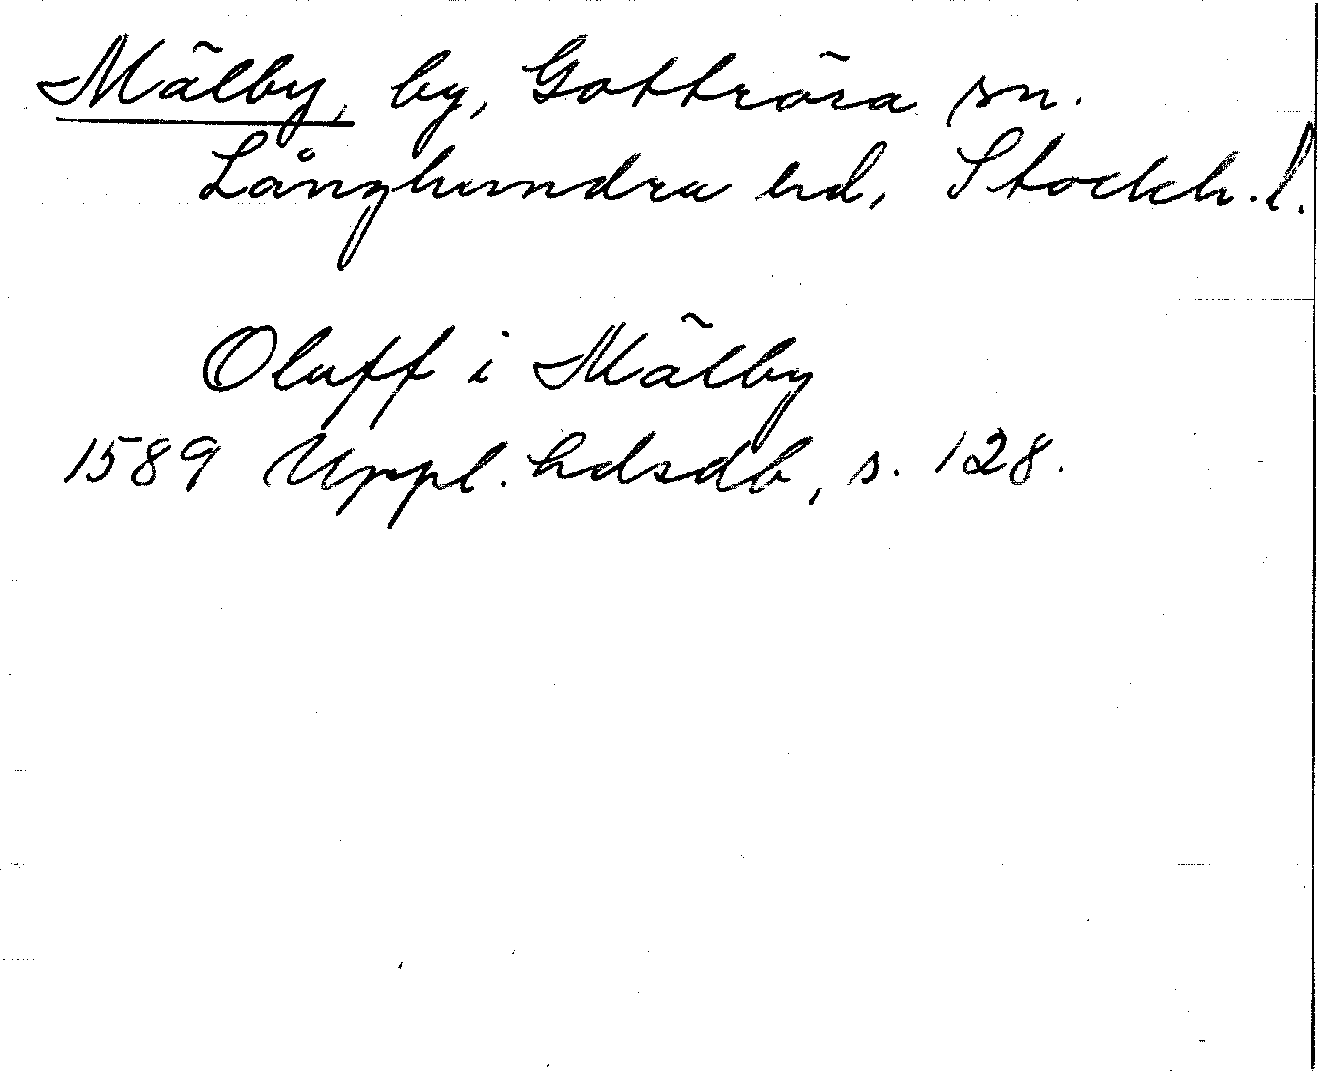 Mälby, by, Gottröra sn.
Långhundra hd, Stockh. l.
Oluff i Mälby
1589 Uppl. hdsdb, s. 128.